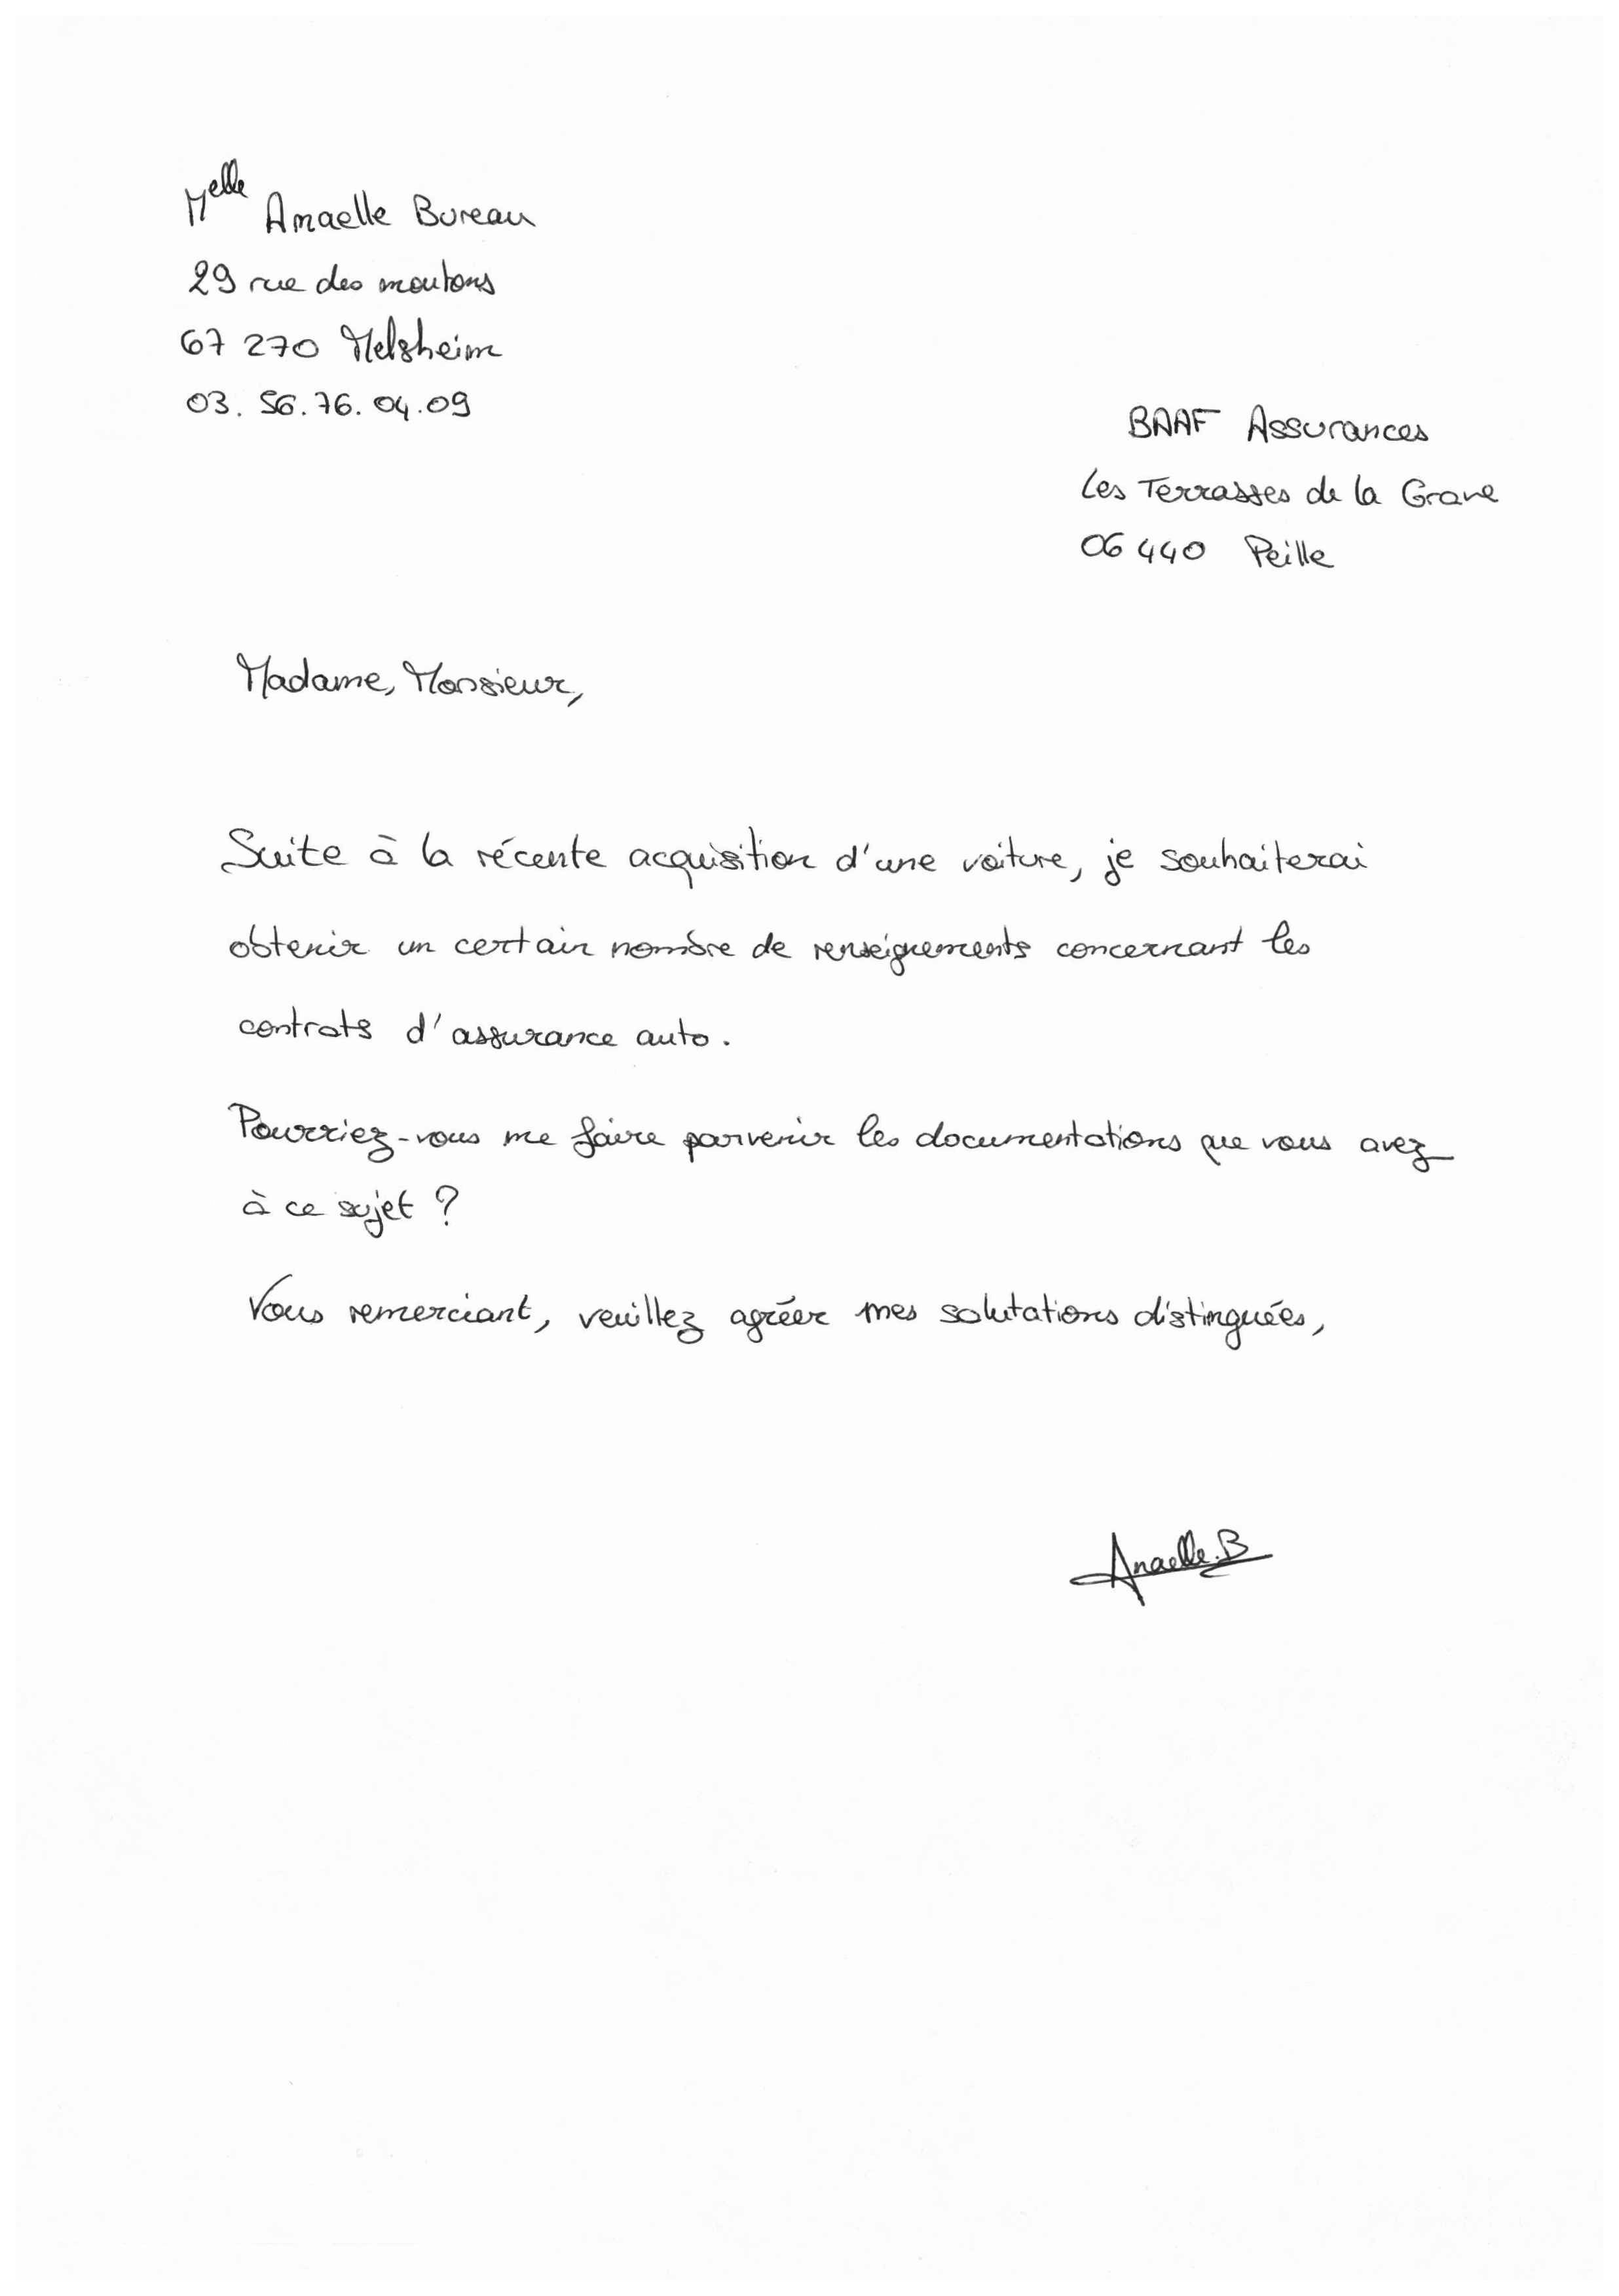 Melle Anaelle Bureau
29 rue des moutons
67 270 Melsheim
03. 56. 76. 04. 09
BAAF Assurances
Les Terrasses de la Grave
06 440 Peille
Madame, Monsieur,
Suite à la récente acquisition d'une voiture, je souhaiterai
obtenir un certain nombre de renseignements concernant les
contrats d'assurance auto.
Pourriez-vous me faire parvenir les documentations que vous avez
à ce sujet ?
Vous remerciant, veuillez agréer mes salutations distinguées,
Anaelle.B